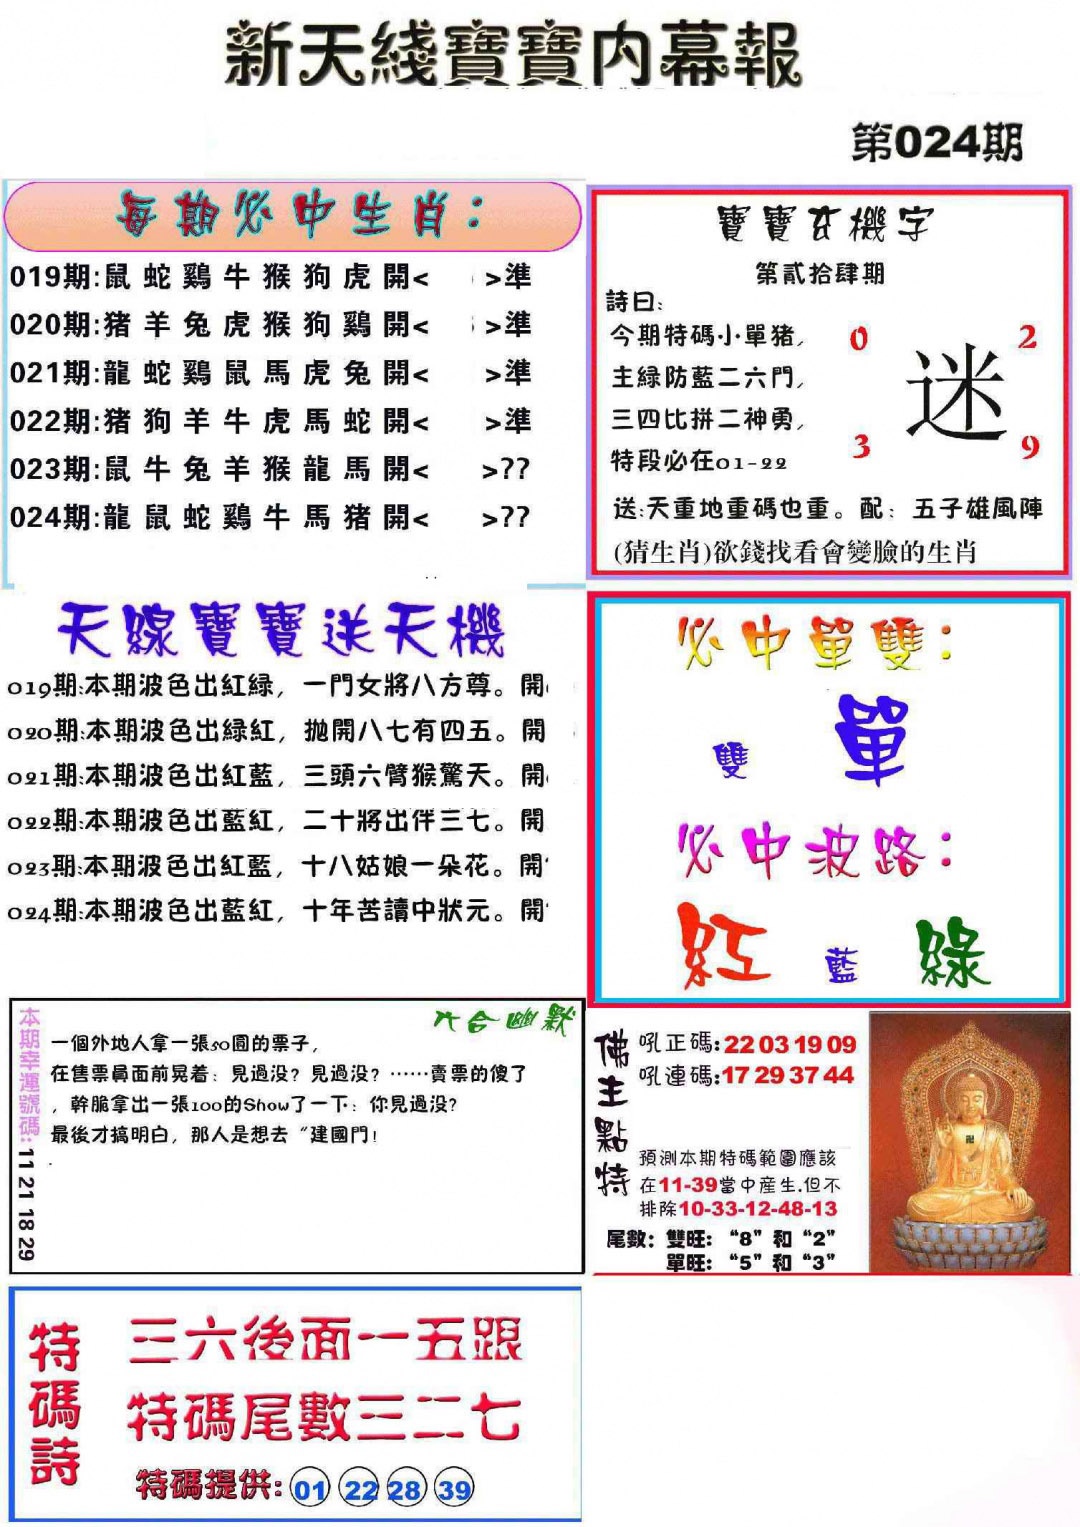 新天綫寶寶内幕報
第024期
每期必中生肖：
019期:鼠 蛇 鷄 牛 猴 狗 虎 開< >準
020期:猪 羊 兔 虎 猴 狗 鷄 開< >準
021期:龍 蛇 鷄 鼠 馬 虎 兔 開< >準
022期:猪 狗 羊 牛 虎 馬 蛇 開< >準
023期:鼠 牛 兔 羊 猴 龍 馬 開< >??
024期:龍 鼠 蛇 鷄 牛 馬 猪 開< >??
寶寶玄機字
第貳拾肆期
詩曰:
今期特碼小單猪,
主緑防藍二六門,
三四比拼二神勇,
特段必在01-22
0 2
迷
3 9
送:天重地重碼也重。配：五子雄風陣
(猜生肖)欲錢找看會變臉的生肖
天線寶寶送天機
019期:本期波色出紅緑，一門女將八方尊。開
020期:本期波色出緑紅，抛開八七有四五。開
021期:本期波色出紅藍，三頭六臂猴驚天。開
022期:本期波色出藍紅，二十將出伴三七。開
023期:本期波色出紅藍，十八姑娘一朵花。開
024期:本期波色出藍紅，十年苦讀中狀元。開
必中單雙：
雙 單
必中波路：
紅 藍 綠
本期幸運號碼:11 21 18 29
六合幽默
一個外地人拿一張50圓的票子,
在售票員面前晃着：見過没？見過没？……賣票的傻了
，幹脆拿出一張100的Show了一下：你見過没?
最後才搞明白，那人是想去“建國門!
佛主點特
吼正碼:22 03 19 09
吼連碼:17 29 37 44
預測本期特碼範圍應該
在11-39當中産生.但不
排除10-33-12-48-13
尾數：雙旺：“8”和“2”
單旺：“5”和“3”
特碼詩
三六後面一五跟
特碼尾數三二七
特碼提供: 01 22 28 39